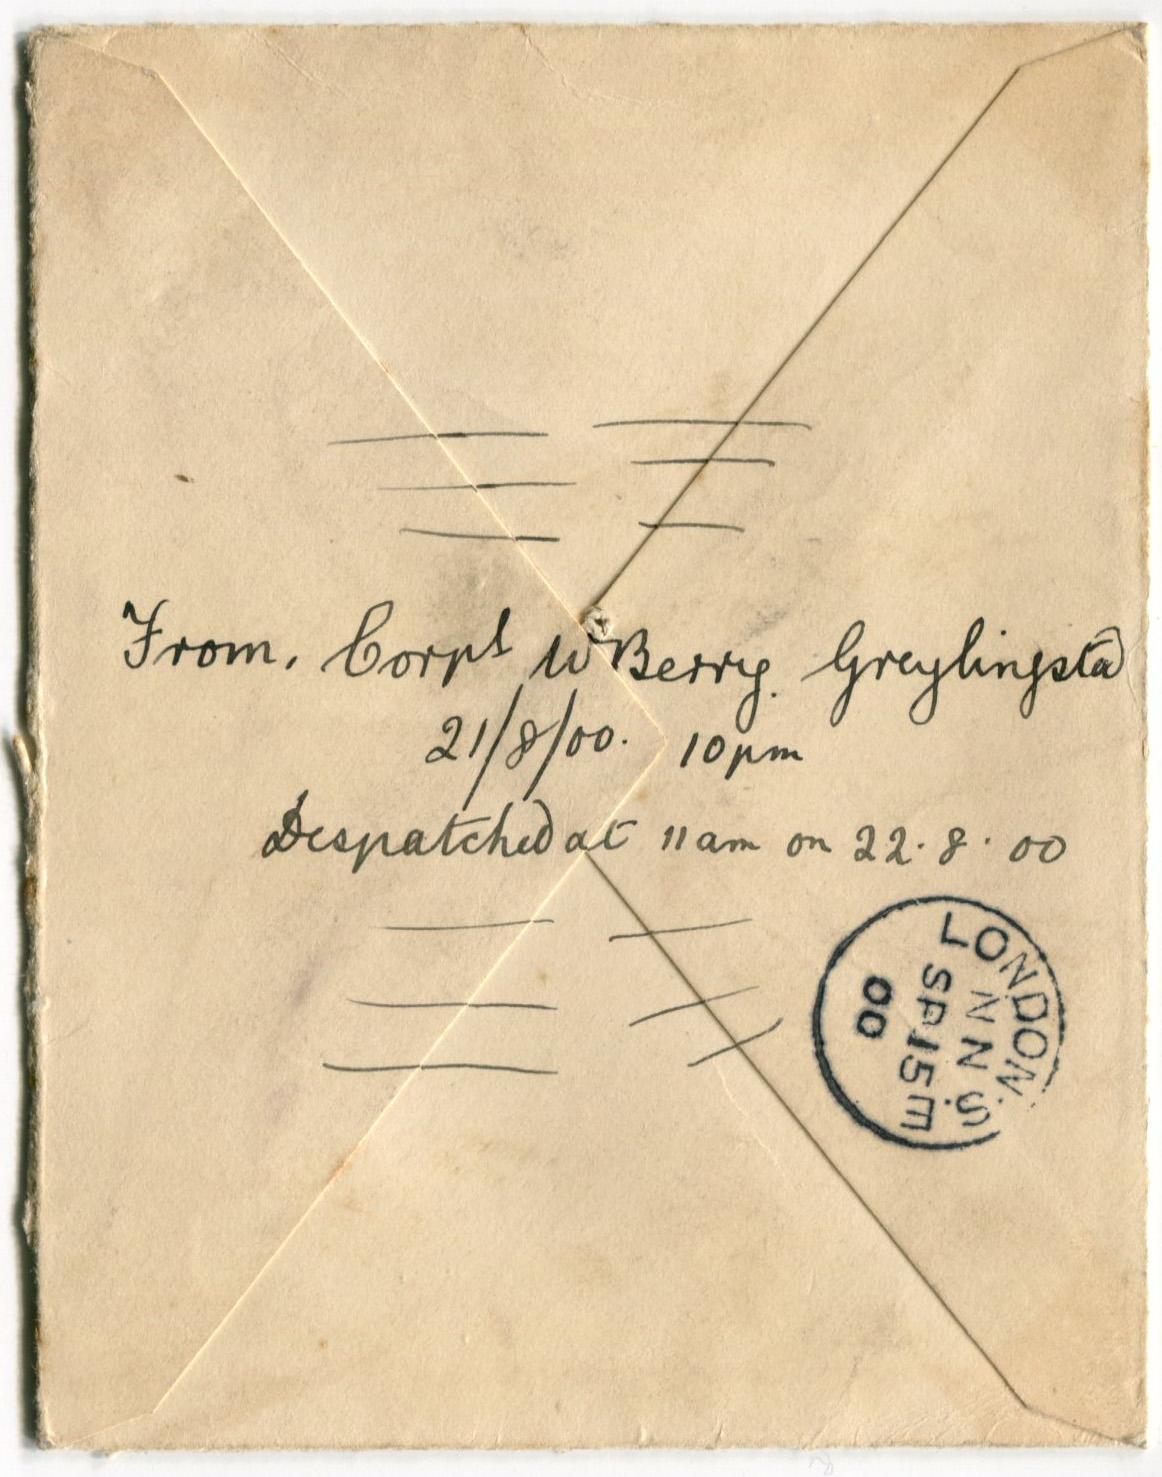 From, Corpl W Berry. Greylingstad
21/8/00. 10pm
Despatched at 11am on 22.8.00
LONDON. N.S.
N N
SP 15 E
00